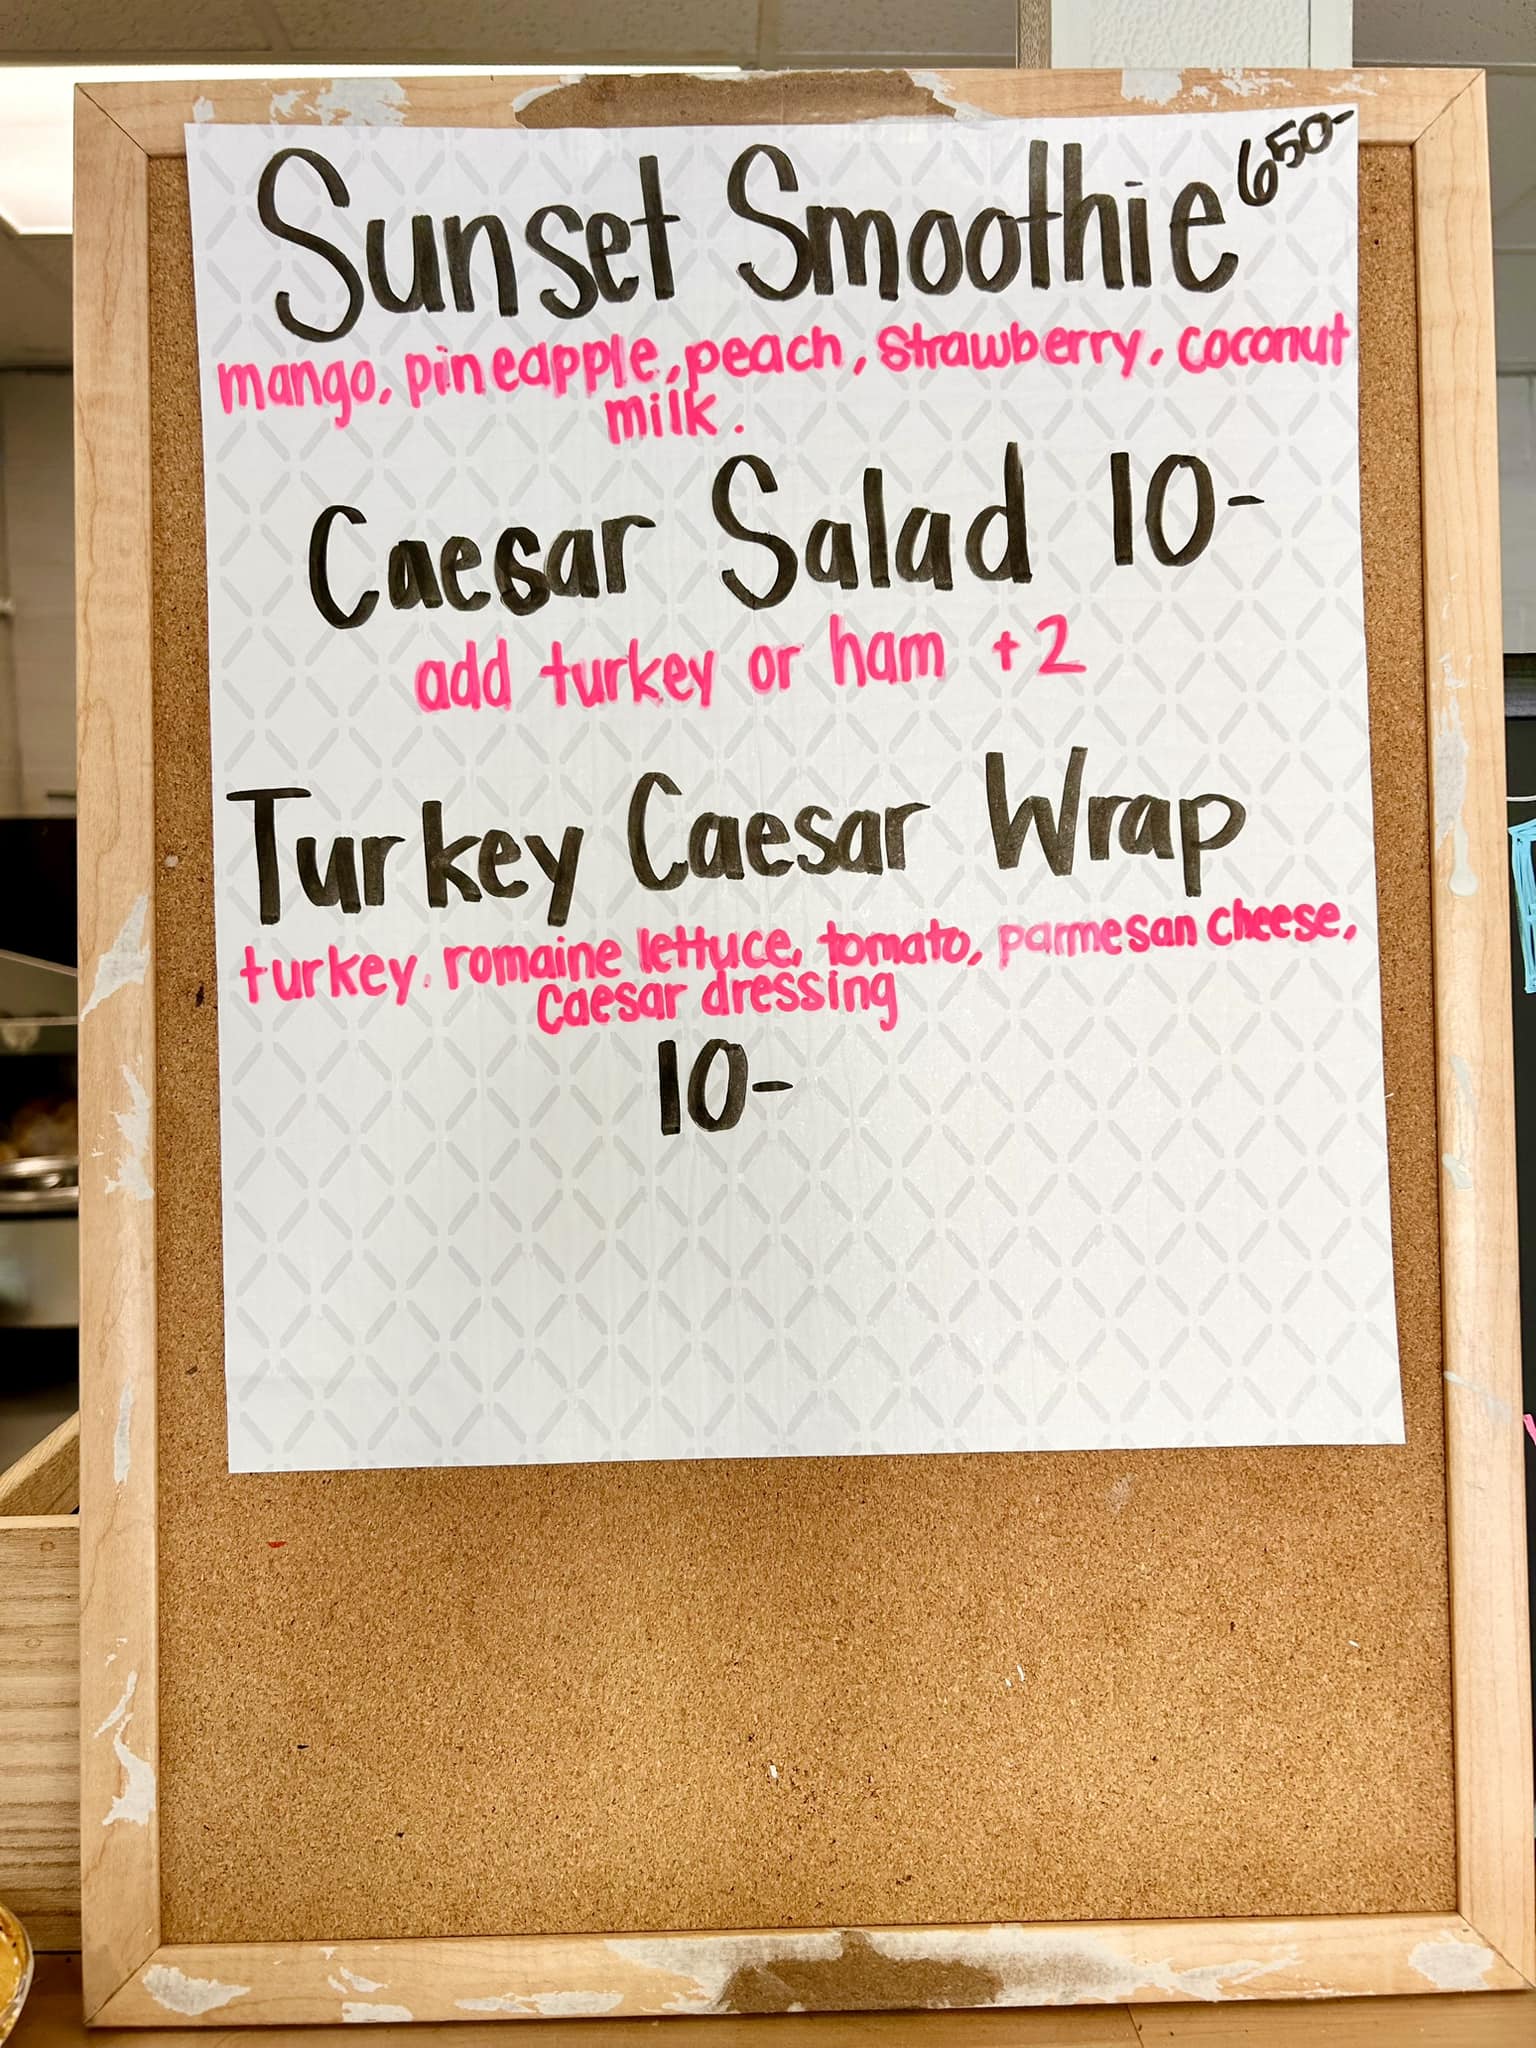 Sunset Smoothie 650-
mango, pineapple, peach, strawberry, coconut
milk.
Caesar Salad 10-
add turkey or ham +2
Turkey Caesar Wrap
turkey, romaine lettuce, tomato, parmesan cheese,
caesar dressing
10-